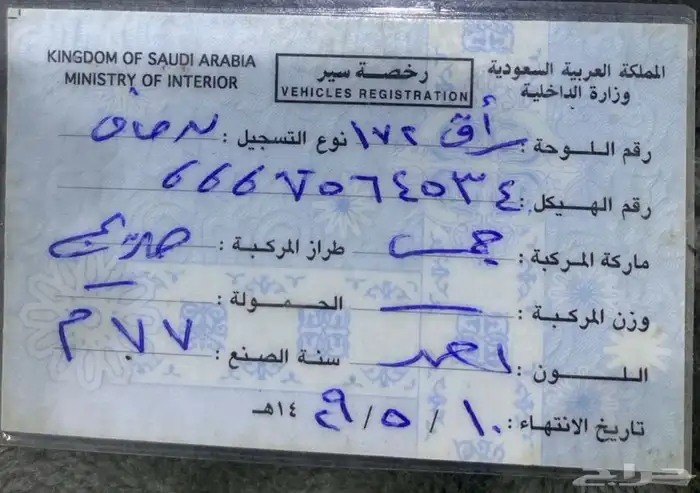 KINGDOM OF SAUDI ARABIA
MINISTRY OF INTERIOR
رخصة سير
VEHICLES REGISTRATION
المملكة العربية السعودية
وزارة الداخلية
رقم اللوحة: ١٧٢ نوع التسجيل: خاص
رقم الهيكل:
ماركة المركبة: جمس طراز المركبة:
وزن المركبة: — الحمولة: —
اللون: احمر سنة الصنع: ٧٧ م
تاريخ الانتهاء: ١٠ / ٥ / ١٤٢٩هـ
حراج